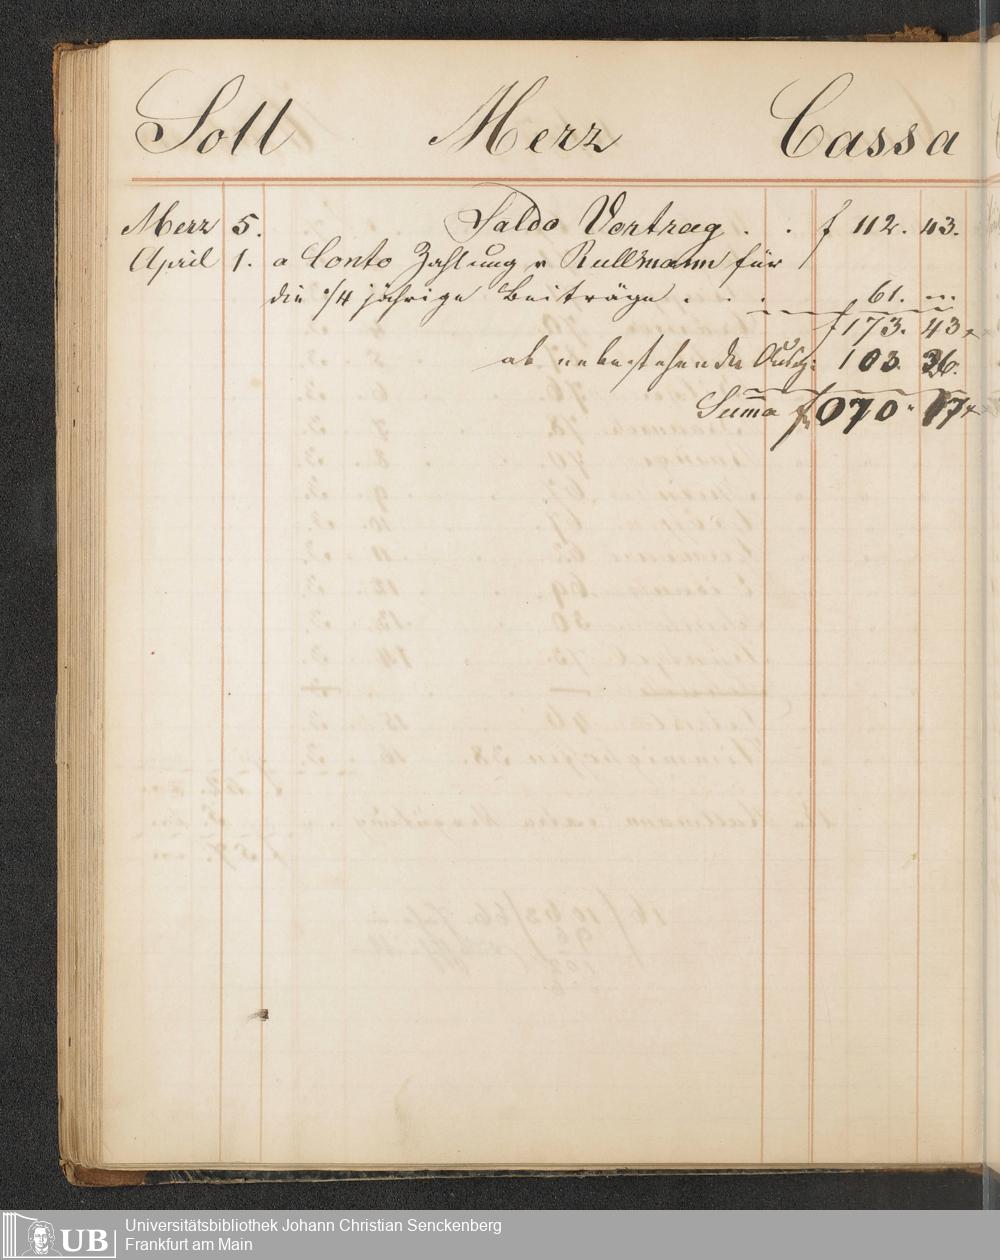 Soll Merz Cassa
Merz 5. Saldo Vortrag . . f 112. 43.
April 1. a Conto Zahlung v Rullmann für
die 1/4 jährige Beiträge . . . 61. "
f 173. 43 x
ab nebestehende Ausg: 103. 26.
Summa f 070. 17 x
Universitätsbibliothek Johann Christian Senckenberg
Frankfurt am Main
UB